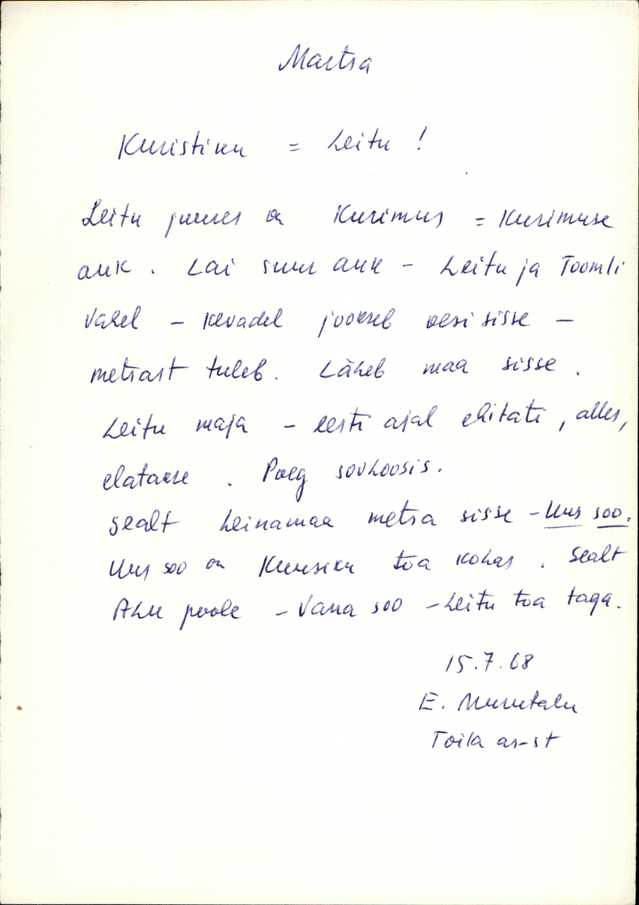 Martsa
Kuristiku = Leitu !
Leitu juures on Kurimus = Kurimuse
auk. Lai suur auk - Leitu ja Toomli
vahel - kevadel jookseb vesi sisse -
metsast tuleb. Läheb maa sisse.
Leitu maja - eesti ajal ehitati, alles,
elatakse. Poeg sovhoosis.
Sealt heinamaa metsa sisse - Uus soo.
Uus soo on Kuusiku toa kohas. Sealt
Ahu poole - Vana soo - Leitu toa taga.
15.7.68
E. Murutalu
Toila as-st